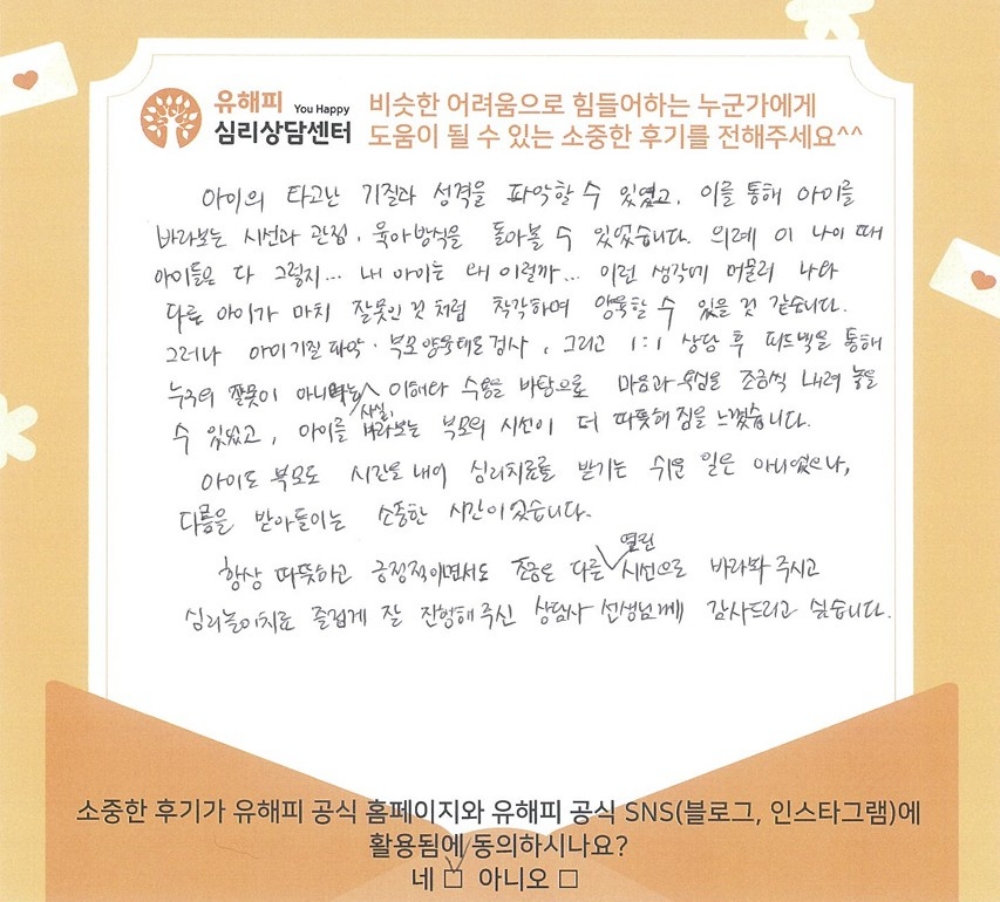 유해피 You Happy
심리상담센터
비슷한 어려움으로 힘들어하는 누군가에게
도움이 될 수 있는 소중한 후기를 전해주세요^^
아이의 타고난 기질과 성격을 파악할 수 있였고, 이를 통해 아이를
바라보는 시선과 관점, 육아방식을 돌아볼 수 있었습니다. 의례 이 나이 때
아이들은 다 그렇지... 내 아이는 왜 이럴까... 이런 생각에 머물러 나와
다른 아이가 마치 잘못인 것 처럼 착각하며 양육할 수 있을 것 같습니다.
그러나 아이기질 파악 · 부모양육태도 검사, 그리고 1:1 상담 후 피드백을 통해
누구의 잘못이 아니라는 사실, 이해와 수용을 바탕으로 마음과 욕심을 조금씩 내려 놓을
수 있었고, 아이를 바라보는 부모의 시선이 더 따뜻해 짐을 느꼈습니다.
아이도 부모도 시간을 내어 심리치료를 받기는 쉬운 일은 아니였으나,
다름을 받아들이는 소중한 시간이었습니다.
항상 따뜻하고 긍정적이면서도 조금은 다른 열린 시선으로 바라봐 주시고
심리놀이치료 즐겁게 잘 진행해 주신 상담사 선생님께 감사드리고 싶습니다.
소중한 후기가 유해피 공식 홈페이지와 유해피 공식 SNS(블로그, 인스타그램)에
활용됨에 동의하시나요?
네 ☑ 아니오 □